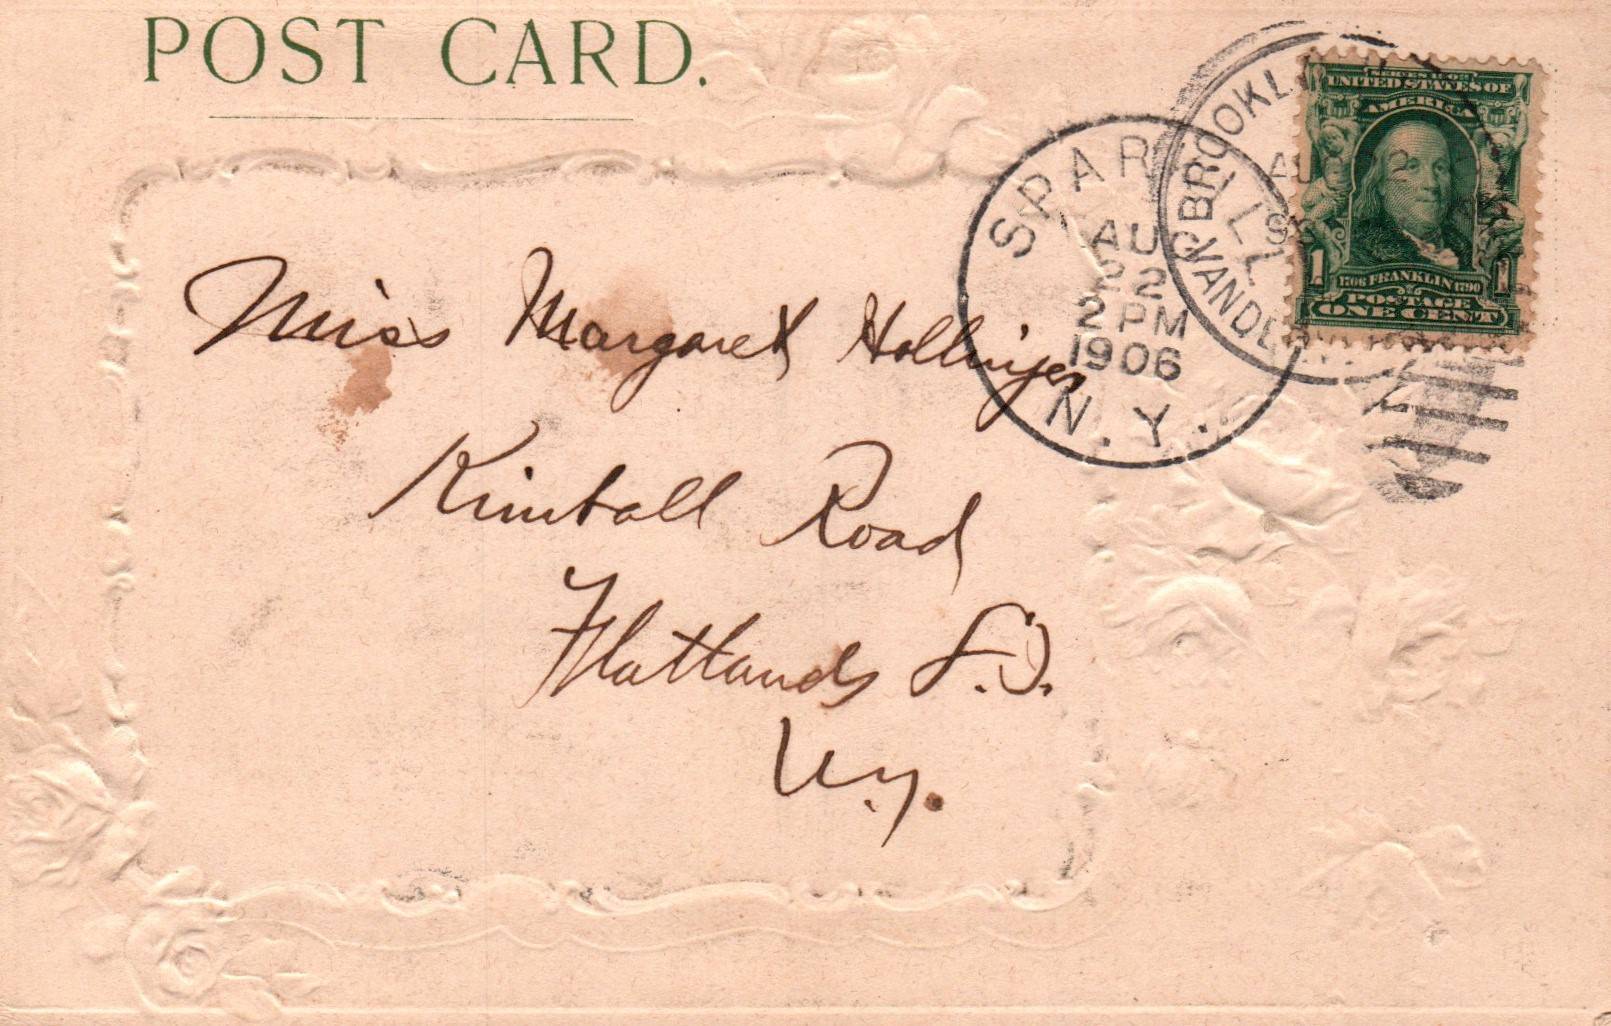 POST CARD.
SPARKILL
AUG
22
2 PM
1906
N.Y.
BROOKL
VANDE
SERIES 1902
UNITED STATES OF
AMERICA
1 1706 FRANKLIN 1790 1
POSTAGE
ONE CENT
Miss Margaret Hollinger
Kimball Road
Flatlands L.I.
N.Y.